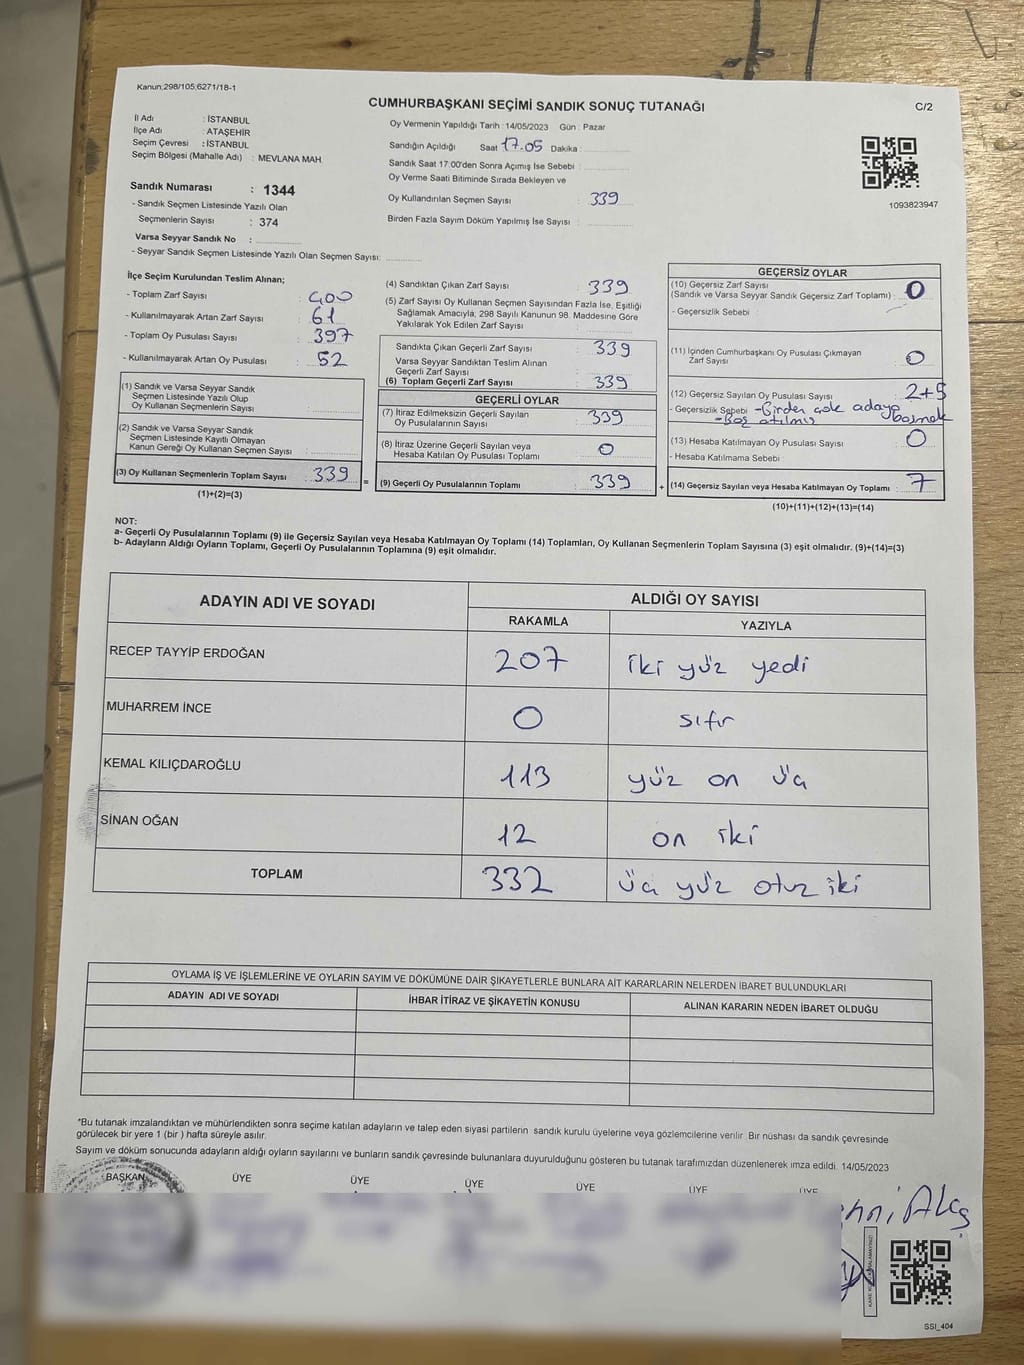 Kanun;298/105;6271/18-1
CUMHURBAŞKANI SEÇİMİ SANDIK SONUÇ TUTANAĞI
C/2
İl Adı : İSTANBUL
İlçe Adı : ATAŞEHİR
Seçim Çevresi : İSTANBUL
Seçim Bölgesi (Mahalle Adı) : MEVLANA MAH.
Sandık Numarası : 1344
- Sandık Seçmen Listesinde Yazılı Olan
Seçmenlerin Sayısı : 374
Varsa Seyyar Sandık No :
- Seyyar Sandık Seçmen Listesinde Yazılı Olan Seçmen Sayısı:
Oy Vermenin Yapıldığı Tarih : 14/05/2023 Gün : Pazar
Sandığın Açıldığı Saat 17.05 Dakika :
Sandık Saat 17:00'den Sonra Açımış İse Sebebi :
Oy Verme Saati Bitiminde Sırada Bekleyen ve
Oy Kullandırılan Seçmen Sayısı : 339
Birden Fazla Sayım Döküm Yapılmış İse Sayısı :
1093823947
İlçe Seçim Kurulundan Teslim Alınan;
- Toplam Zarf Sayısı : 400
- Kullanılmayarak Artan Zarf Sayısı : 61
- Toplam Oy Pusulası Sayısı : 397
- Kullanılmayarak Artan Oy Pusulası : 52
(1) Sandık ve Varsa Seyyar Sandık
Seçmen Listesinde Yazılı Olup
Oy Kullanan Seçmenlerin Sayısı :
(2) Sandık ve Varsa Seyyar Sandık
Seçmen Listesinde Kayıtlı Olmayan
Kanun Gereği Oy Kullanan Seçmen Sayısı :
(3) Oy Kullanan Seçmenlerin Toplam Sayısı : 339
(1)+(2)=(3)
=
(4) Sandıktan Çıkan Zarf Sayısı : 339
(5) Zarf Sayısı Oy Kullanan Seçmen Sayısından Fazla İse, Eşitliği
Sağlamak Amacıyla, 298 Sayılı Kanunun 98. Maddesine Göre
Yakılarak Yok Edilen Zarf Sayısı :
Sandıkta Çıkan Geçerli Zarf Sayısı : 339
Varsa Seyyar Sandıktan Teslim Alınan
Geçerli Zarf Sayısı :
(6) Toplam Geçerli Zarf Sayısı : 339
GEÇERLİ OYLAR
(7) İtiraz Edilmeksizin Geçerli Sayılan
Oy Pusulalarının Sayısı : 339
(8) İtiraz Üzerine Geçerli Sayılan veya
Hesaba Katılan Oy Pusulası Toplamı : 0
(9) Geçerli Oy Pusulalarının Toplamı : 339
+
GEÇERSİZ OYLAR
(10) Geçersiz Zarf Sayısı
(Sandık ve Varsa Seyyar Sandık Geçersiz Zarf Toplamı) : 0
- Geçersizlik Sebebi :
(11) İçinden Cumhurbaşkanı Oy Pusulası Çıkmayan
Zarf Sayısı : 0
(12) Geçersiz Sayılan Oy Pusulası Sayısı : 2+5
- Geçersizlik Sebebi - Birden çok adaya basmak
- Boş atılmış
(13) Hesaba Katılmayan Oy Pusulası Sayısı : 0
- Hesaba Katılmama Sebebi
(14) Geçersiz Sayılan veya Hesaba Katılmayan Oy Toplamı : 7
(10)+(11)+(12)+(13)=(14)
NOT:
a- Geçerli Oy Pusulalarının Toplamı (9) ile Geçersiz Sayılan veya Hesaba Katılmayan Oy Toplamı (14) Toplamları, Oy Kullanan Seçmenlerin Toplam Sayısına (3) eşit olmalıdır. (9)+(14)=(3)
b- Adayların Aldığı Oyların Toplamı, Geçerli Oy Pusulalarının Toplamına (9) eşit olmalıdır.
ADAYIN ADI VE SOYADI ALDIĞI OY SAYISI
RAKAMLA YAZIYLA
RECEP TAYYİP ERDOĞAN 207 iki yüz yedi
MUHARREM İNCE 0 sıfır
KEMAL KILIÇDAROĞLU 113 yüz on üç
SİNAN OĞAN 12 on iki
TOPLAM 332 üç yüz otuz iki
OYLAMA İŞ VE İŞLEMLERİNE VE OYLARIN SAYIM VE DÖKÜMÜNE DAİR ŞİKAYETLERLE BUNLARA AİT KARARLARIN NELERDEN İBARET BULUNDUKLARI
ADAYIN ADI VE SOYADI İHBAR İTİRAZ VE ŞİKAYETİN KONUSU ALINAN KARARIN NEDEN İBARET OLDUĞU
*Bu tutanak imzalandıktan ve mühürlendikten sonra seçime katılan adayların ve talep eden siyasi partilerin sandık kurulu üyelerine veya gözlemcilerine verilir. Bir nüshası da sandık çevresinde
görülecek bir yere 1 (bir ) hafta süreyle asılır.
Sayım ve döküm sonucunda adayların aldığı oyların sayılarını ve bunların sandık çevresinde bulunanlara duyurulduğunu gösteren bu tutanak tarafımızdan düzenlenerek imza edildi. 14/05/2023
BAŞKAN ÜYE ÜYE ÜYE ÜYE ÜYE ÜYE
SSI_404